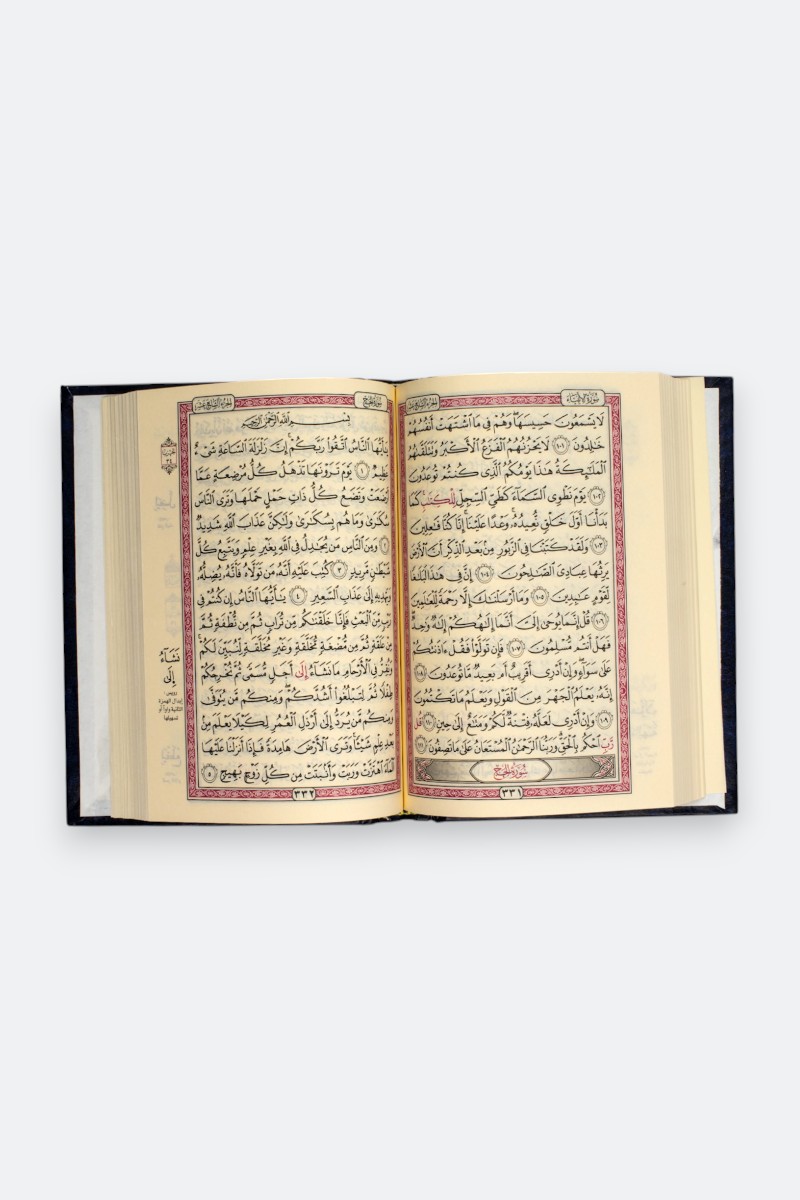 سُورَةُ الأَنبِيَاءِ
الجُزْءُ السَّابِعَ عَشَرَ
لَا يَسْمَعُونَ حَسِيسَهَا وَهُمْ فِي مَا ٱشْتَهَتْ أَنفُسُهُمْ
خَٰلِدُونَ ١٠١ لَا يَحْزُنُهُمُ ٱلْفَزَعُ ٱلْأَكْبَرُ وَتَتَلَقَّىٰهُمُ
ٱلْمَلَٰٓئِكَةُ هَٰذَا يَوْمُكُمُ ٱلَّذِي كُنتُمْ تُوعَدُونَ
١٠٢ يَوْمَ نَطْوِي ٱلسَّمَآءَ كَطَيِّ ٱلسِّجِلِّ لِلْكِتَٰبِ كَمَا
بَدَأْنَآ أَوَّلَ خَلْقٍ نُّعِيدُهُۥ وَعْدًا عَلَيْنَآ إِنَّا كُنَّا فَٰعِلِينَ
١٠٣ وَلَقَدْ كَتَبْنَا فِي ٱلزَّبُورِ مِنۢ بَعْدِ ٱلذِّكْرِ أَنَّ ٱلْأَرْضَ
يَرِثُهَا عِبَادِيَ ٱلصَّٰلِحُونَ ١٠٤ إِنَّ فِي هَٰذَا لَبَلَٰغًا
لِّقَوْمٍ عَٰبِدِينَ ١٠٥ وَمَآ أَرْسَلْنَٰكَ إِلَّا رَحْمَةً لِّلْعَٰلَمِينَ
١٠٦ قُلْ إِنَّمَا يُوحَىٰٓ إِلَيَّ أَنَّمَآ إِلَٰهُكُمْ إِلَٰهٌ وَٰحِدٌ
فَهَلْ أَنتُم مُّسْلِمُونَ ١٠٧ فَإِن تَوَلَّوْا فَقُلْ ءَاذَنتُكُمْ
عَلَىٰ سَوَآءٍ وَإِنْ أَدْرِيٓ أَقَرِيبٌ أَم بَعِيدٌ مَّا تُوعَدُونَ ١٠٨
إِنَّهُۥ يَعْلَمُ ٱلْجَهْرَ مِنَ ٱلْقَوْلِ وَيَعْلَمُ مَا تَكْتُمُونَ
١٠٩ وَإِنْ أَدْرِي لَعَلَّهُۥ فِتْنَةٌ لَّكُمْ وَمَتَٰعٌ إِلَىٰ حِينٍ ١١٠ قُل
رَّبِّ ٱحْكُم بِٱلْحَقِّ وَرَبُّنَا ٱلرَّحْمَٰنُ ٱلْمُسْتَعَانُ عَلَىٰ مَا تَصِفُونَ ١١١
سُورَةُ الحَجِّ
٣٣١
سُورَةُ الحَجِّ
الجُزْءُ السَّابِعَ عَشَرَ
بِسْمِ ٱللَّهِ ٱلرَّحْمَٰنِ ٱلرَّحِيمِ
يَٰٓأَيُّهَا ٱلنَّاسُ ٱتَّقُوا رَبَّكُمْ إِنَّ زَلْزَلَةَ ٱلسَّاعَةِ شَيْءٌ
عَظِيمٌ ١ يَوْمَ تَرَوْنَهَا تَذْهَلُ كُلُّ مُرْضِعَةٍ عَمَّآ
أَرْضَعَتْ وَتَضَعُ كُلُّ ذَاتِ حَمْلٍ حَمْلَهَا وَتَرَى ٱلنَّاسَ
سُكَٰرَىٰ وَمَا هُم بِسُكَٰرَىٰ وَلَٰكِنَّ عَذَابَ ٱللَّهِ شَدِيدٌ
٢ وَمِنَ ٱلنَّاسِ مَن يُجَٰدِلُ فِي ٱللَّهِ بِغَيْرِ عِلْمٍ وَيَتَّبِعُ كُلَّ
شَيْطَٰنٍ مَّرِيدٍ ٣ كُتِبَ عَلَيْهِ أَنَّهُۥ مَن تَوَلَّاهُ فَأَنَّهُۥ يُضِلُّهُۥ
وَيَهْدِيهِ إِلَىٰ عَذَابِ ٱلسَّعِيرِ ٤ يَٰٓأَيُّهَا ٱلنَّاسُ إِن كُنتُمْ فِي
رَيْبٍ مِّنَ ٱلْبَعْثِ فَإِنَّا خَلَقْنَٰكُم مِّن تُرَابٍ ثُمَّ مِن نُّطْفَةٍ ثُمَّ
مِنْ عَلَقَةٍ ثُمَّ مِن مُّضْغَةٍ مُّخَلَّقَةٍ وَغَيْرِ مُخَلَّقَةٍ لِّنُبَيِّنَ لَكُمْ
وَنُقِرُّ فِي ٱلْأَرْحَامِ مَا نَشَآءُ إِلَىٰٓ أَجَلٍ مُّسَمًّى ثُمَّ نُخْرِجُكُمْ
طِفْلًا ثُمَّ لِتَبْلُغُوٓا أَشُدَّكُمْ وَمِنكُم مَّن يُتَوَفَّىٰ
وَمِنكُم مَّن يُرَدُّ إِلَىٰٓ أَرْذَلِ ٱلْعُمُرِ لِكَيْلَا يَعْلَمَ مِنۢ
بَعْدِ عِلْمٍ شَيْـًٔا وَتَرَى ٱلْأَرْضَ هَامِدَةً فَإِذَآ أَنزَلْنَا عَلَيْهَا
ٱلْمَآءَ ٱهْتَزَّتْ وَرَبَتْ وَأَنۢبَتَتْ مِن كُلِّ زَوْجٍ بَهِيجٍ ٥
٣٣٢
نَشَآءُ
إِلَىٰ
رويس:
إبدال الهمزة
الثانية واواً أو
تسهيلها